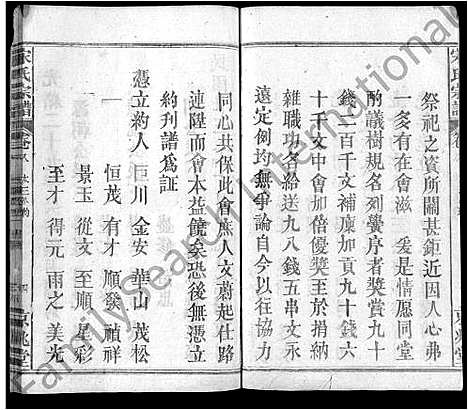 宋氏宗譜
祭祀之資所關甚鉅近因人心弗
一多有遊 爰是情愿同堂
酌議樹規名列黌序者獎錢十
錢二百千文加貢九十千錢
十千文中會加倍優獎至於
雜職功名給送九八錢五串文永
遠定例均無爭論自今以往協力
同心共保此會庶人文蔚起仕路
連陞而會本益饒矣恐後無憑立
約刊譜為証
憑立約人 巨川 金安 華山 茂松
恒茂 有才 順發 禎祥
景玉 從文 至順 星彩
至才 得元 雨之 美光
宋氏宗譜
卷八
京兆堂
FamilySearch International